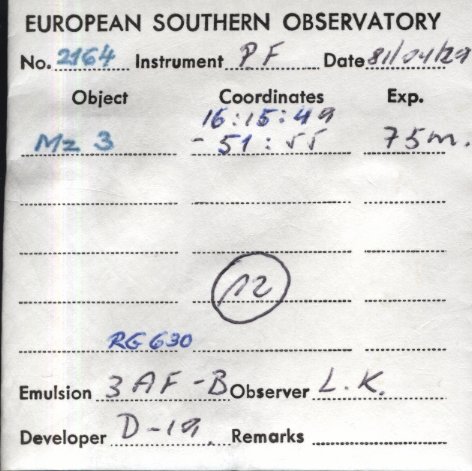 EUROPEAN SOUTHERN OBSERVATORY
No. 2164 Instrument PF Date 81/04/29
Object Coordinates Exp.
Mz 3 16:15:49 75m.
-51:55
12
RG 630
Emulsion 3AF-B Observer L.K.
Developer D-19. Remarks